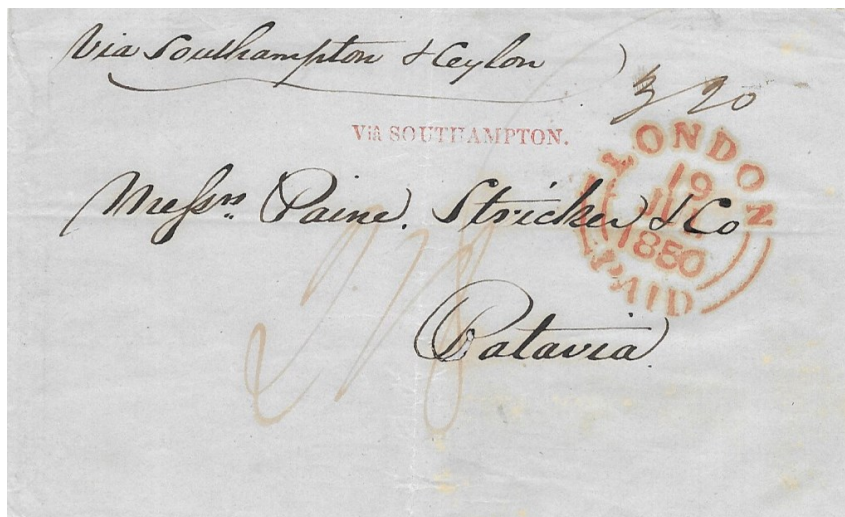 Via Southampton & Ceylon
3/20
Viâ SOUTHAMPTON.
LONDON
19
1850
PAID
Messrs Paine. Stricker & Co
Batavia